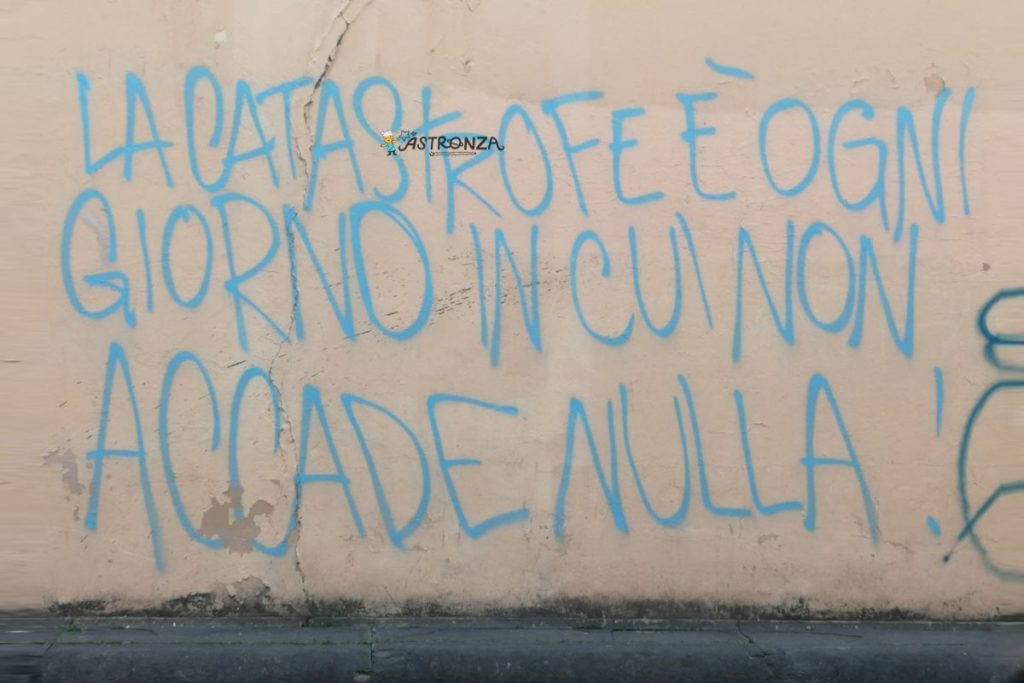 LA CATASTROFE È OGNI
ASTRONZA
GIORNO IN CUI NON
ACCADE NULLA!